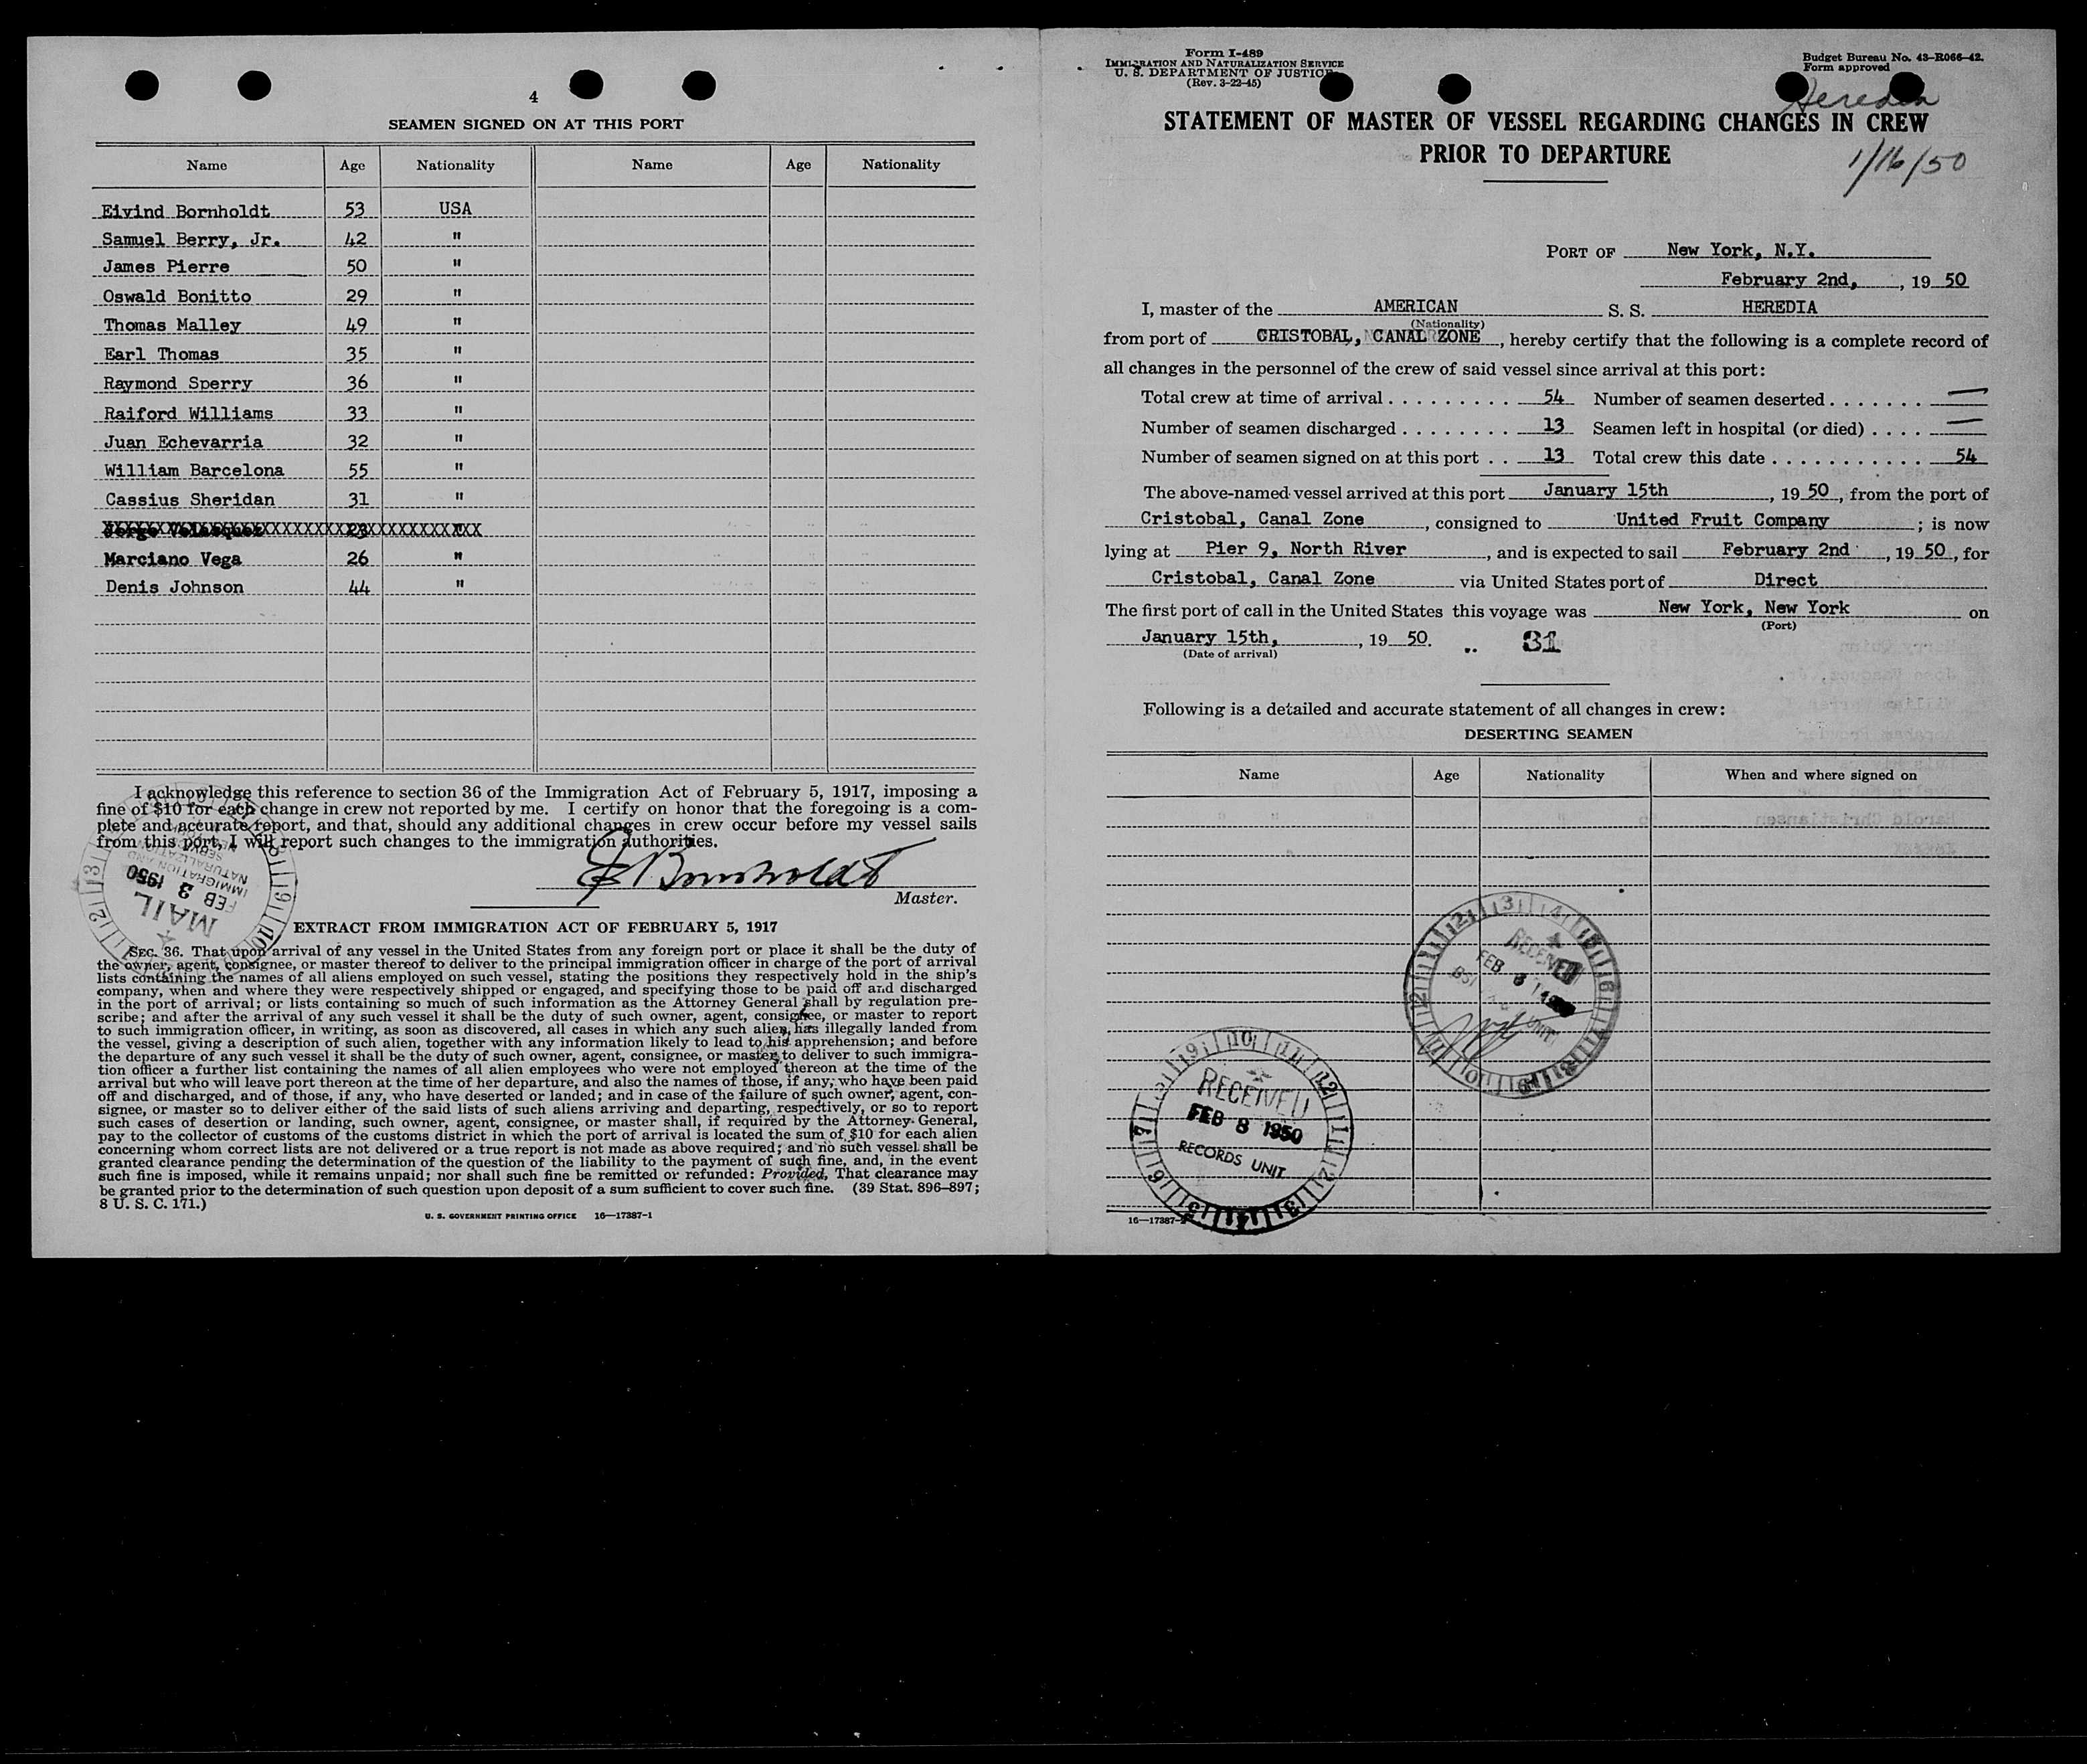 4
SEAMEN SIGNED ON AT THIS PORT
Name Age Nationality Name Age Nationality
Eivind Bornholdt 53 USA
Samuel Berry, Jr. 42 "
James Pierre 50 "
Oswald Bonitto 29 "
Thomas Malley 49 "
Earl Thomas 35 "
Raymond Sperry 36 "
Raiford Williams 33 "
Juan Echevarria 32 "
William Barcelona 55 "
Cassius Sheridan 31 "
Jorge Velasquez 23 "
Marciano Vega 26 "
Denis Johnson 44 "
I acknowledge this reference to section 36 of the Immigration Act of February 5, 1917, imposing a
fine of $10 for each change in crew not reported by me. I certify on honor that the foregoing is a com-
plete and accurate report, and that, should any additional changes in crew occur before my vessel sails
from this port, I will report such changes to the immigration authorities.
E Bornholdt
Master.
MAIL
FEB 3 1950
IMMIGRATION AND
NATURALIZATION
EXTRACT FROM IMMIGRATION ACT OF FEBRUARY 5, 1917
SEC. 36. That upon arrival of any vessel in the United States from any foreign port or place it shall be the duty of
the owner, agent, consignee, or master thereof to deliver to the principal immigration officer in charge of the port of arrival
lists containing the names of all aliens employed on such vessel, stating the positions they respectively hold in the ship's
company, when and where they were respectively shipped or engaged, and specifying those to be paid off and discharged
in the port of arrival; or lists containing so much of such information as the Attorney General shall by regulation pre-
scribe; and after the arrival of any such vessel it shall be the duty of such owner, agent, consignee, or master to report
to such immigration officer, in writing, as soon as discovered, all cases in which any such alien has illegally landed from
the vessel, giving a description of such alien, together with any information likely to lead to his apprehension; and before
the departure of any such vessel it shall be the duty of such owner, agent, consignee, or master to deliver to such immigra-
tion officer a further list containing the names of all alien employees who were not employed thereon at the time of the
arrival but who will leave port thereon at the time of her departure, and also the names of those, if any, who have been paid
off and discharged, and of those, if any, who have deserted or landed; and in case of the failure of such owner, agent, con-
signee, or master so to deliver either of the said lists of such aliens arriving and departing, respectively, or so to report
such cases of desertion or landing, such owner, agent, consignee, or master shall, if required by the Attorney General,
pay to the collector of customs of the customs district in which the port of arrival is located the sum of $10 for each alien
concerning whom correct lists are not delivered or a true report is not made as above required; and no such vessel shall be
granted clearance pending the determination of the question of the liability to the payment of such fine, and, in the event
such fine is imposed, while it remains unpaid; nor shall such fine be remitted or refunded: Provided, That clearance may
be granted prior to the determination of such question upon deposit of a sum sufficient to cover such fine. (39 Stat. 896–897;
8 U. S. C. 171.)
U. S. GOVERNMENT PRINTING OFFICE 16—17387-1
Form I-489
IMMIGRATION AND NATURALIZATION SERVICE
U. S. DEPARTMENT OF JUSTICE
(Rev. 3-22-45)
Budget Bureau No. 43-R066-42.
Form approved
Heredia
STATEMENT OF MASTER OF VESSEL REGARDING CHANGES IN CREW
PRIOR TO DEPARTURE
1/16/50
PORT OF New York, N.Y.
February 2nd, , 19 50
I, master of the AMERICAN S. S. HEREDIA
(Nationality)
from port of CRISTOBAL, CANAL ZONE , hereby certify that the following is a complete record of
all changes in the personnel of the crew of said vessel since arrival at this port:
Total crew at time of arrival . . . . . . . . . 54 Number of seamen deserted . . . . . . . —
Number of seamen discharged . . . . . . . . 13 Seamen left in hospital (or died) . . . . —
Number of seamen signed on at this port . . 13 Total crew this date . . . . . . . . . . . 54
The above-named vessel arrived at this port January 15th , 19 50 , from the port of
Cristobal, Canal Zone , consigned to United Fruit Company ; is now
lying at Pier 9, North River , and is expected to sail February 2nd , 19 50 , for
Cristobal, Canal Zone via United States port of Direct
The first port of call in the United States this voyage was New York, New York on
(Port)
January 15th, , 19 50. 31
(Date of arrival)
Following is a detailed and accurate statement of all changes in crew:
DESERTING SEAMEN
Name Age Nationality When and where signed on
RECEIVED
FEB 8
UNIT
RECEIVED
FEB 8 1950
RECORDS UNIT
16—17387-